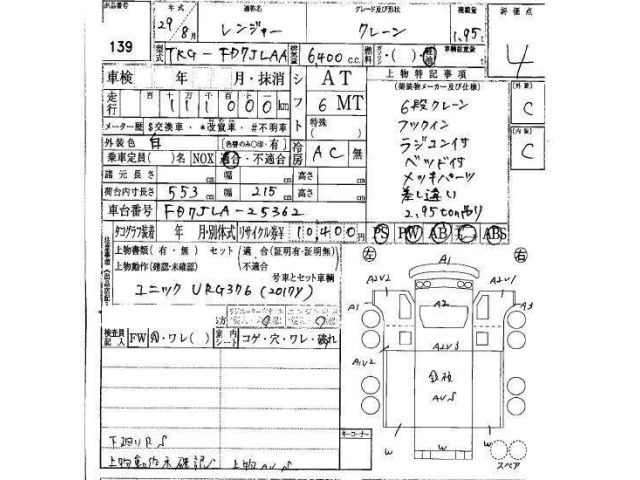 出品番号 年式 通称名 グレード及び形状 積載量 評価点
139 29年8月 レンジャー クレーン 1.95t 4
型式 TKG-FD7JLAA 排気量 6400c.c. 燃料 ガソリン・( )・軽油
車検 年 月・抹消 シフト AT 上物特記事項
走行 111000km 6 MT (架装物メーカー及び仕様) 外装 C
メーター歴 $交換車・*改ざん車・#不明車 特殊( ) 6段クレーン
外装色 白 (色替のみ○印・有) 冷房 AC 無 フックイン 内装 C
乗車定員( )名 NOX 適合・不適合 ラジコン付
諸元長さ cm 幅 cm 高さ cm ベッド付
荷台内寸長さ 553cm 幅 215cm 高さ cm メッキパーツ
車台番号 FD7JLA-25362 差し違い
2.95ton吊り
タコグラフ装着 年 月・別体式 リサイクル券¥ 10,400円 PS PW AB ABS
上物書類(有・無) セット(適合(証明有・証明無)
上物動作(確認・未確認) 不適合 号車とセット車輌
ユニック URG376 (2017Y)
左 右
A1
A2V2 A2V1
A1 A2 A3
A2V3
A1V2
鉄板
AVS
W W W W
スペア
検査員記入 FW A・ワレ( ) 室内シート コゲ・穴・ワレ・破れ
キーコーナー
下廻りRS
上物動作未確認 上物AVS